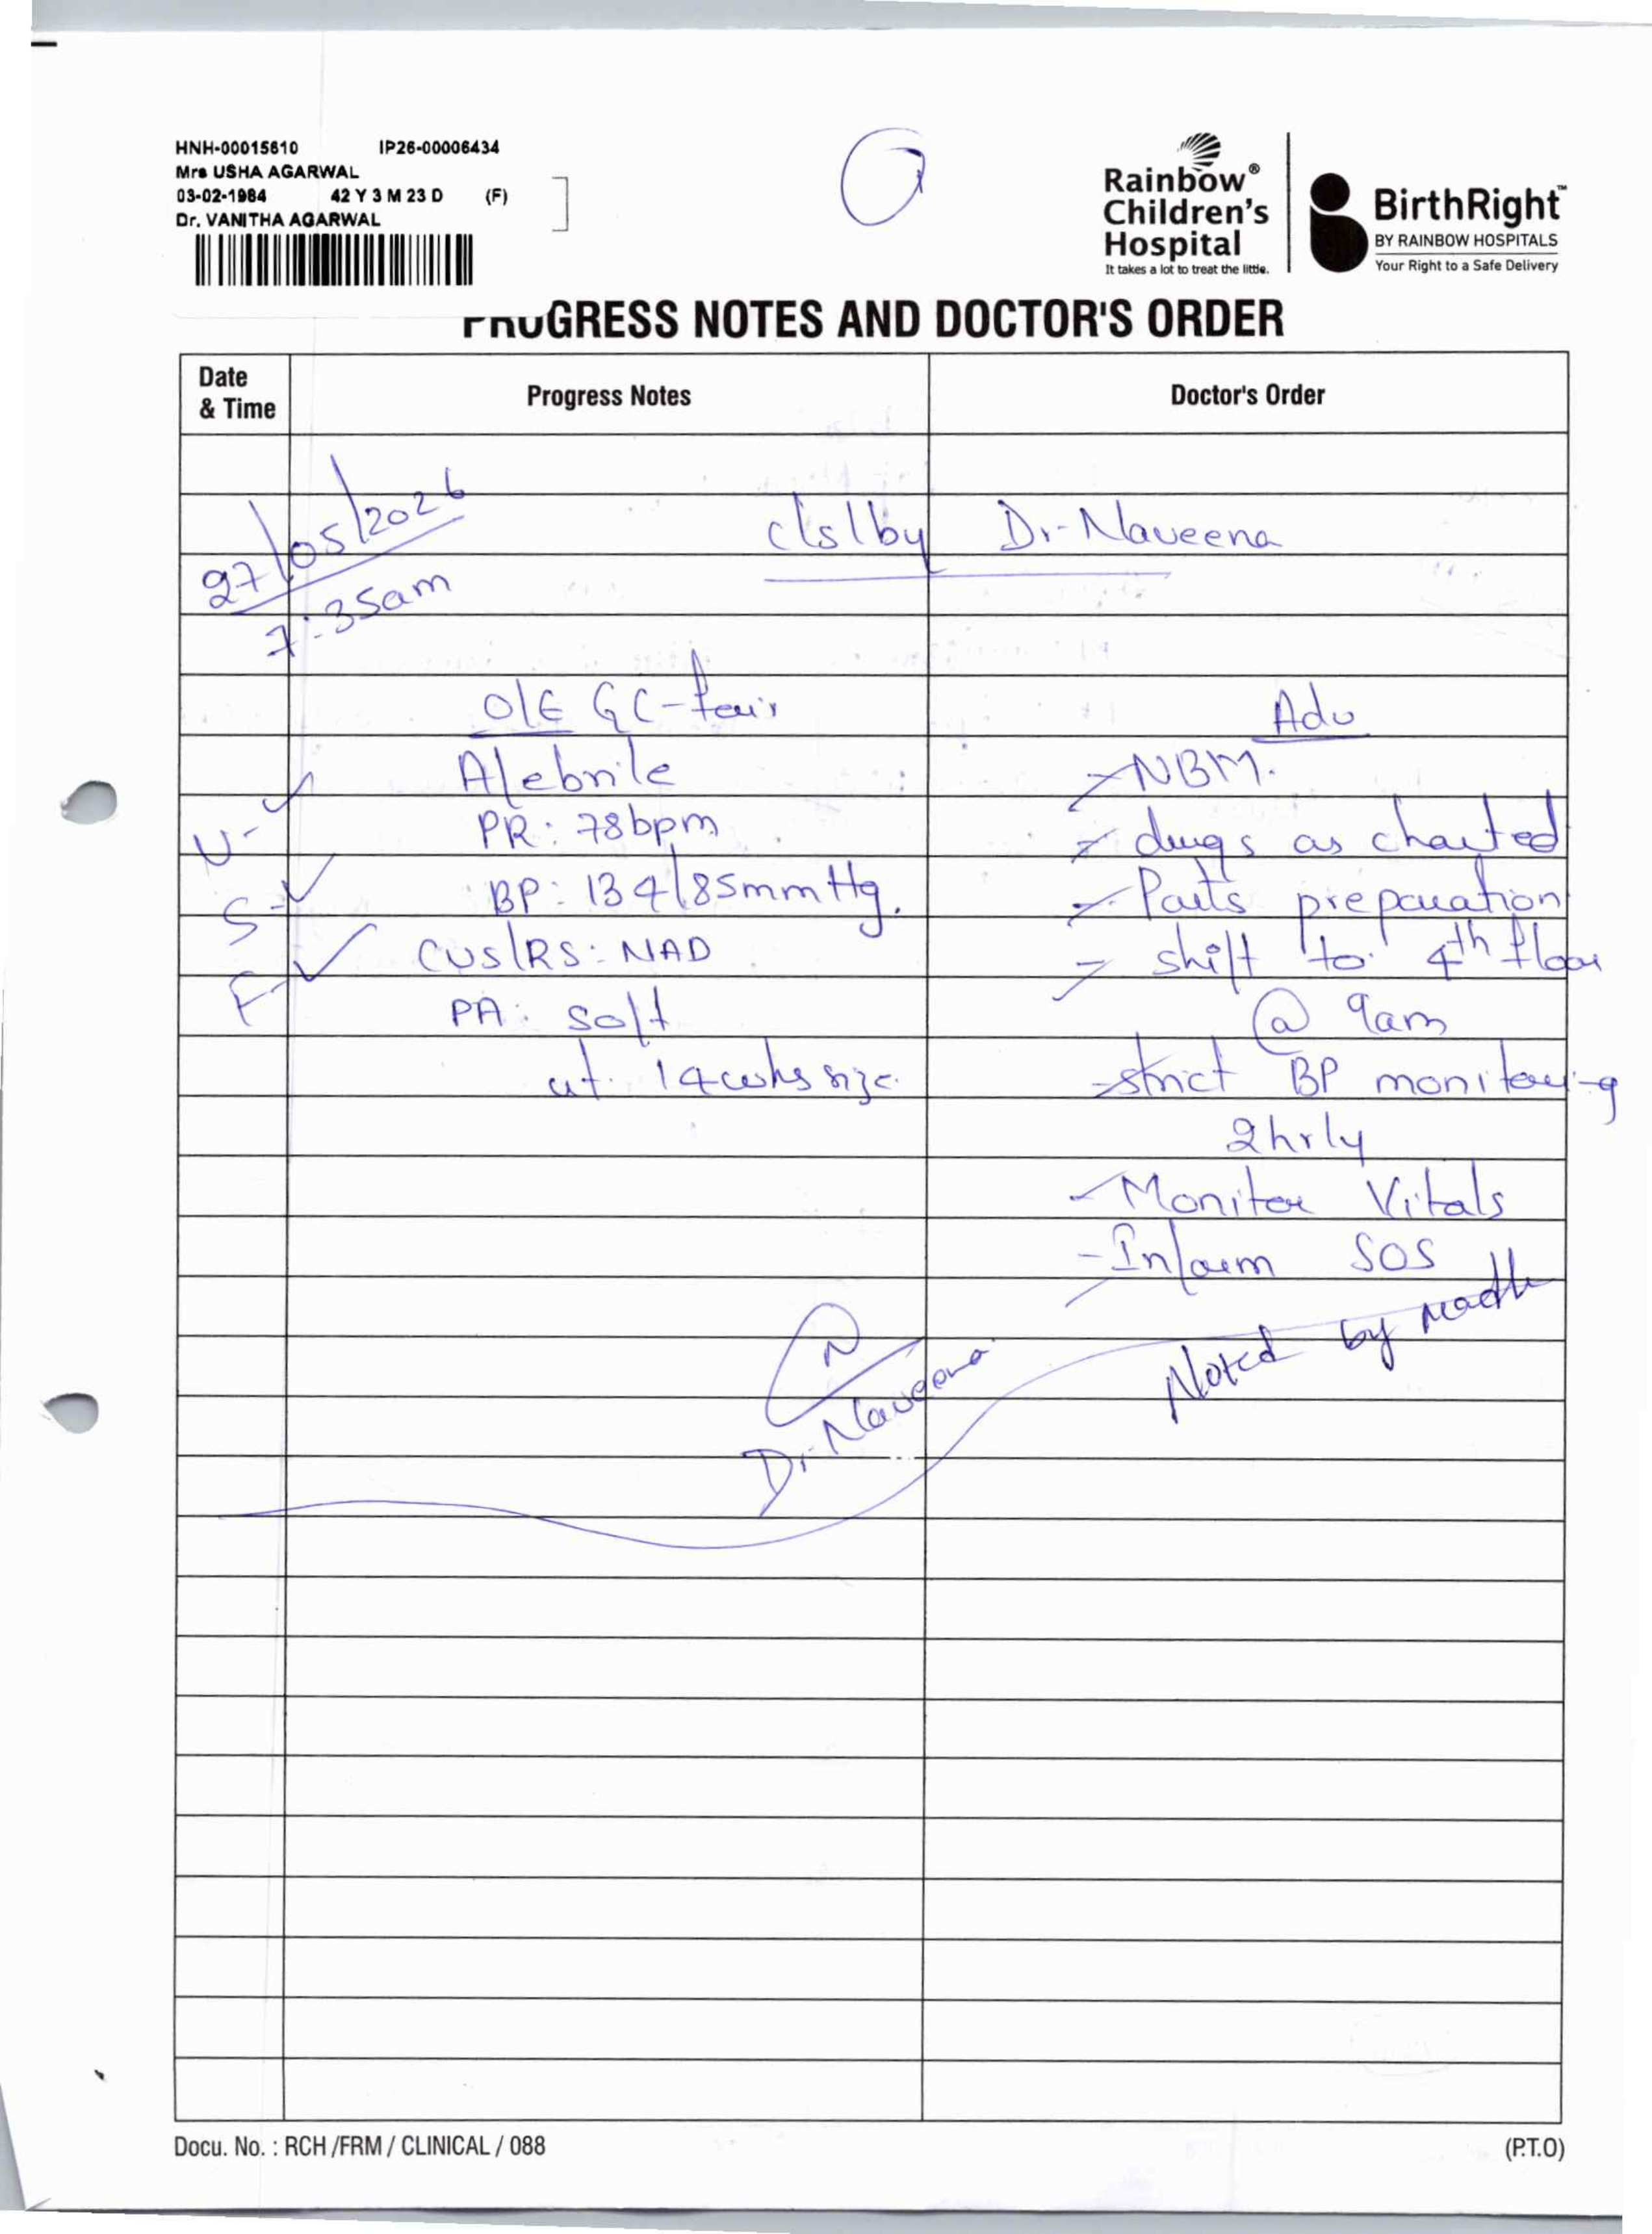 HNH-00015610 IP26-00006434
Mrs USHA AGARWAL
03-02-1984 42 Y 3 M 23 D (F)
Dr. VANITHA AGARWAL
Rainbow®
Children's
Hospital
It takes a lot to treat the little.
BirthRight™
BY RAINBOW HOSPITALS
Your Right to a Safe Delivery
PROGRESS NOTES AND DOCTOR'S ORDER
Date & Time Progress Notes Doctor's Order
27/05/2026
7:35am
c/s/by Dr. Naveena
O/E GC-fair Adv
Afebrile - NBM.
U-✓ PR: 78bpm - drugs as charted
S-✓ BP: 134/85mmHg. - Parts preparation
F-✓ CVS/RS: NAD - shift to 4th floor
PA: soft @ 9am
ut. 14wks size. - strict BP monitoring
2hrly
- Monitor Vitals
- Inform SOS
Noted by
Dr. Naveena
Docu. No. : RCH /FRM / CLINICAL / 088 (P.T.O)